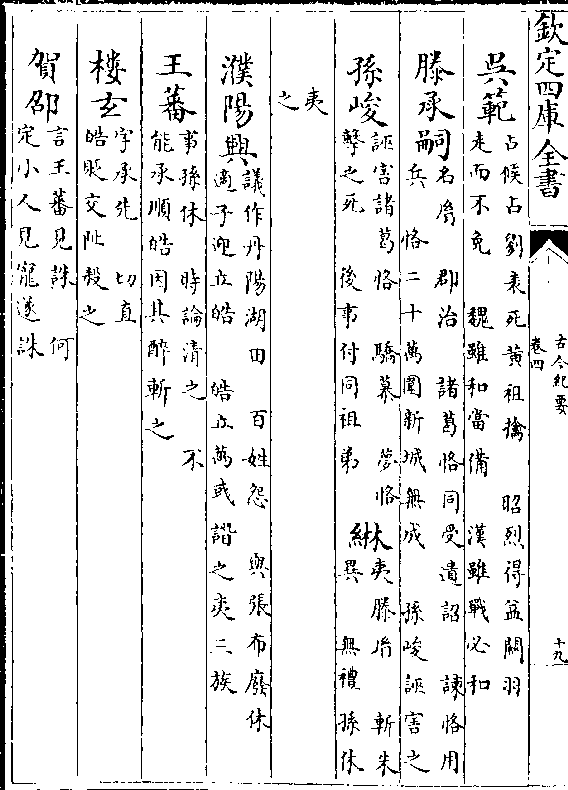 欽定四庫全書
古今紀要
卷四
十九
吳範
占候占劉表死黃祖擒 昭烈得益關羽
走而不免 魏雖和當備 漢雖戰必和
滕承嗣
名胤 郡治 諸葛恪同受遺詔 諫恪用
兵 恪二十萬圍新城無成 孫峻誣害之
孫峻
誣害諸葛恪 驕暴 夢恪
擊之死 後事付同祖弟
綝
夷滕胤 斬朱
異 無禮 孫休
夷
之
濮陽興
議作丹陽湖田 百姓怨 與張布廢休
適子迎立皓 皓立萬彧譖之夷三族
王蕃
事孫休 時論清之 不
能承順皓因其醉斬之
樓玄
字承先 切直
皓貶交阯殺之
賀邵
言王蕃見誅 何
定小人見寵遂誅